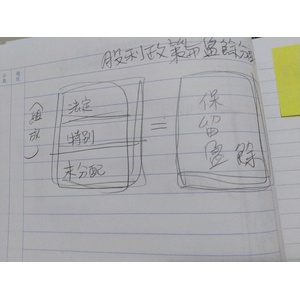 股利政策而盈餘分
(組成)
法定
特別
未分配
=
保
留
盈餘